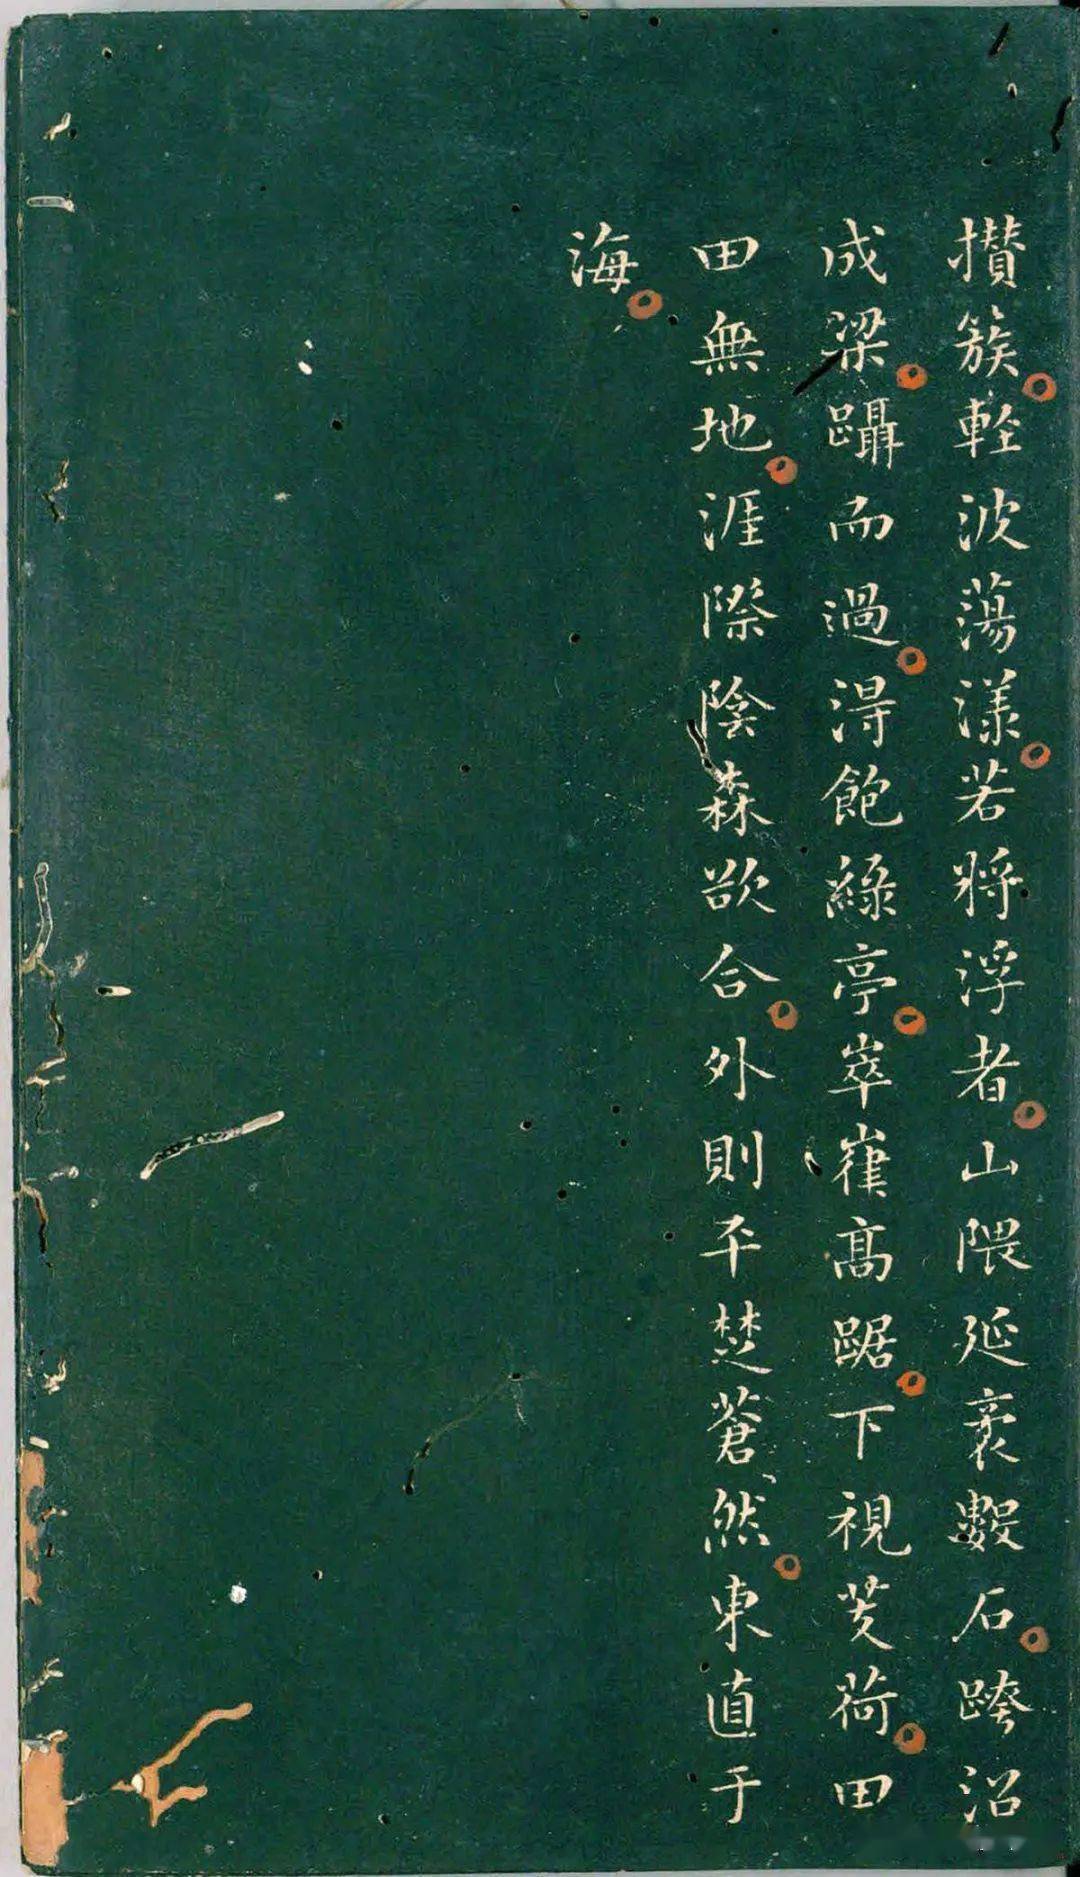 攅簇輕波蕩漾若将浮者山隈延袤數石跨沼
成梁躡而過淂飽綠亭崒嵂髙踞下視芰荷田
田無地涯際陰森欲合外則平楚蒼然東直于
海